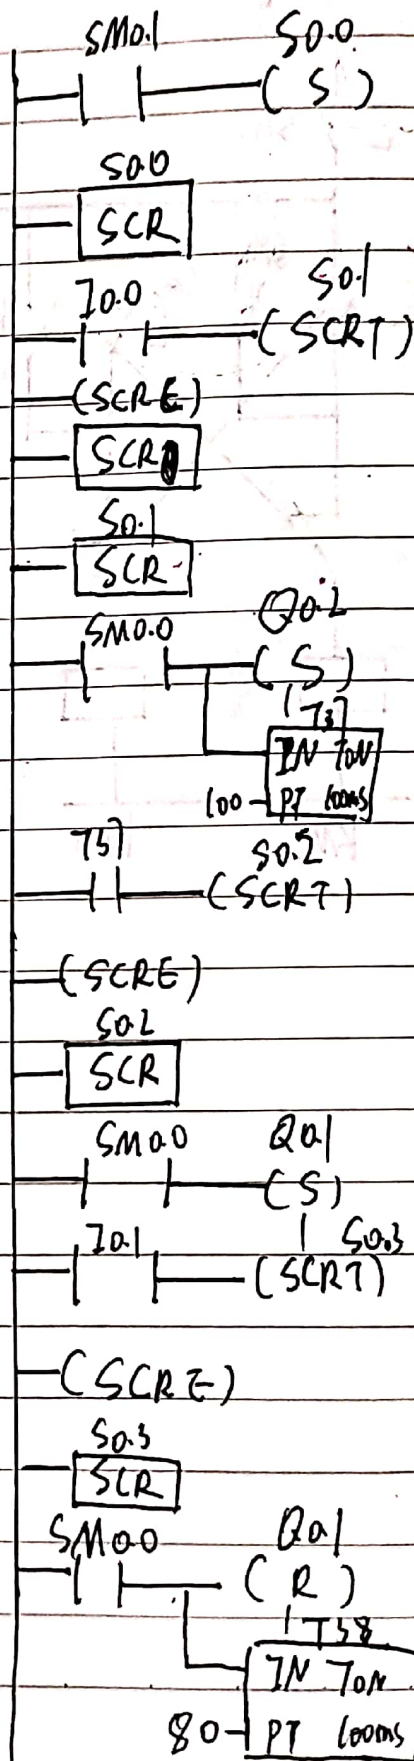 SM0.1 S0.0
( S )
S0.0
SCR
I0.0 S0.1
(SCRT)
(SCRE)
SCR
S0.1
SCR
SM0.0 Q0.2
( S )
1 T37
IN TON
100 PT 100ms
T37 S0.2
(SCRT)
(SCRE)
S0.2
SCR
SM0.0 Q0.1
(S)
I0.1 1 S0.3
(SCRT)
(SCRE)
S0.3
SCR
SM0.0 Q0.1
( R )
1 T38
IN TON
80 PT 100ms